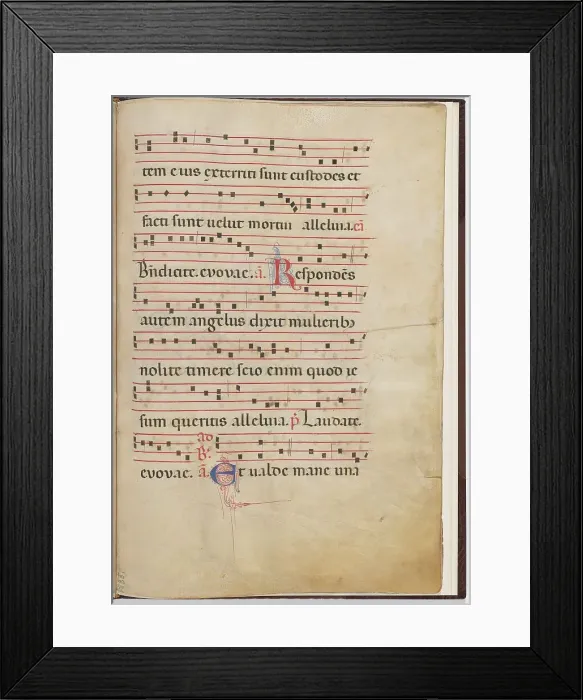 tem eius exterriti sunt custodes et
facti sunt uelut mortui alleluia. cã
Bñdicite. evovae. ã. Respondẽs
autem angelus dixit mulierib
nolite timere scio enim quod ie
sum queritis alleluia. p̃ Laudate.
ad
B.
evovae. ã. Et ualde mane una